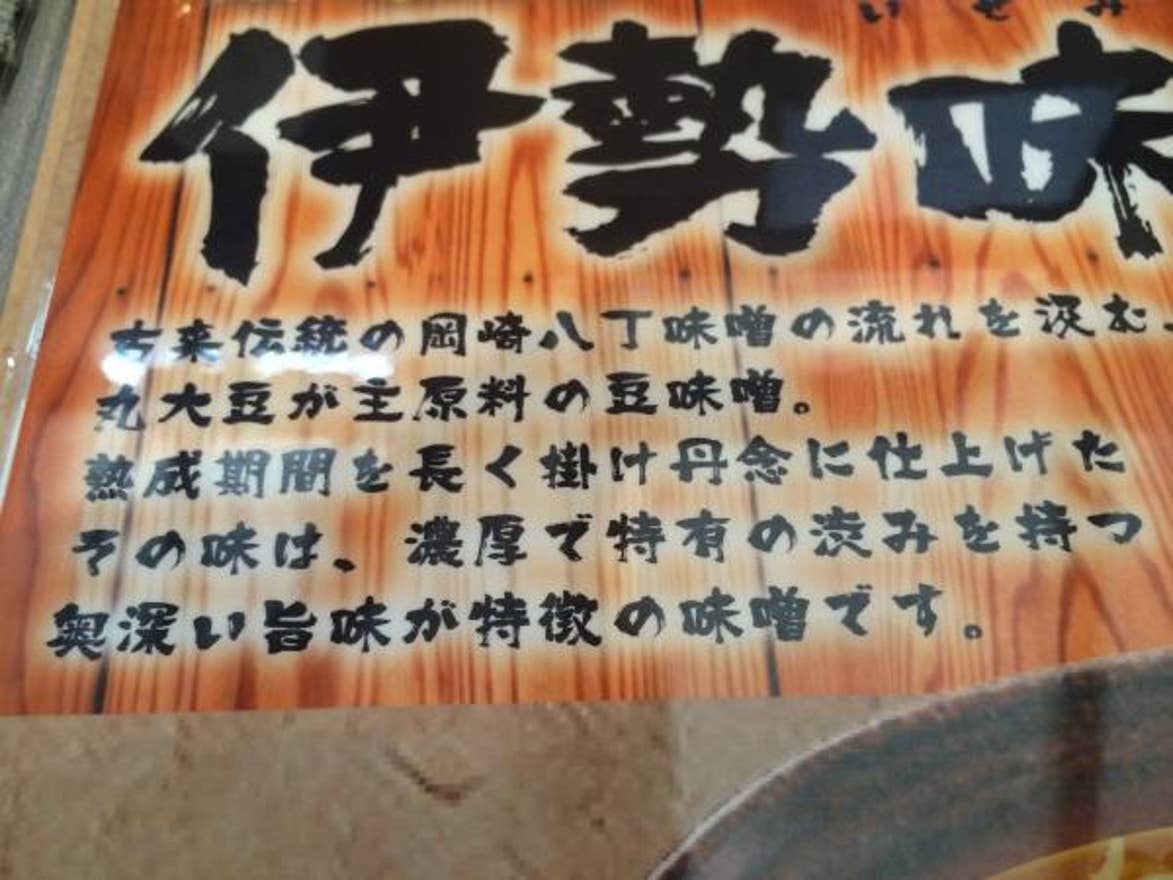 いせみ
伊勢味
古来伝統の岡崎八丁味噌の流れを汲む、
丸大豆が主原料の豆味噌。
熟成期間を長く掛け丹念に仕上げた
その味は、濃厚で特有の渋みを持つ
奥深い旨味が特徴の味噌です。